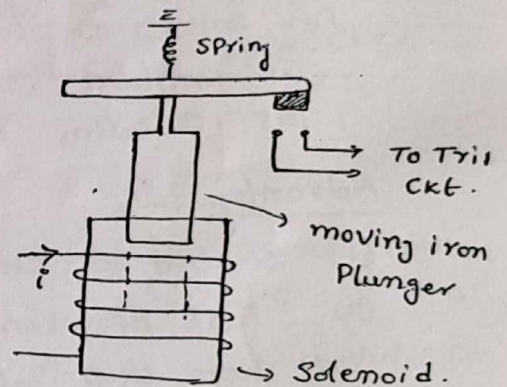 Spring
To Tril
Ckt.
moving iron
Plunger
i
Solenoid.